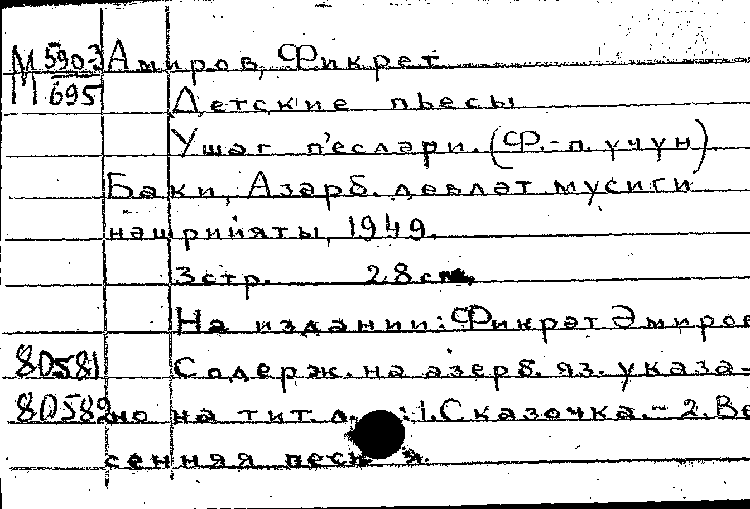 М 5903 Амиров, Фикрет
М 695 Детские пьесы
Ушаг п'еслари. (Ф.-п. үчүн)
Баки, Азәрб. девләт мусиги
нәшрийяты, 1949.
3 стр. 28 см.
На издании: Фикрәт Әмиров
80581 Содерж. на азерб. яз. указа-
80582 но на тит. л. : 1. Сказочка. - 2. Ве
сенняя песн я.